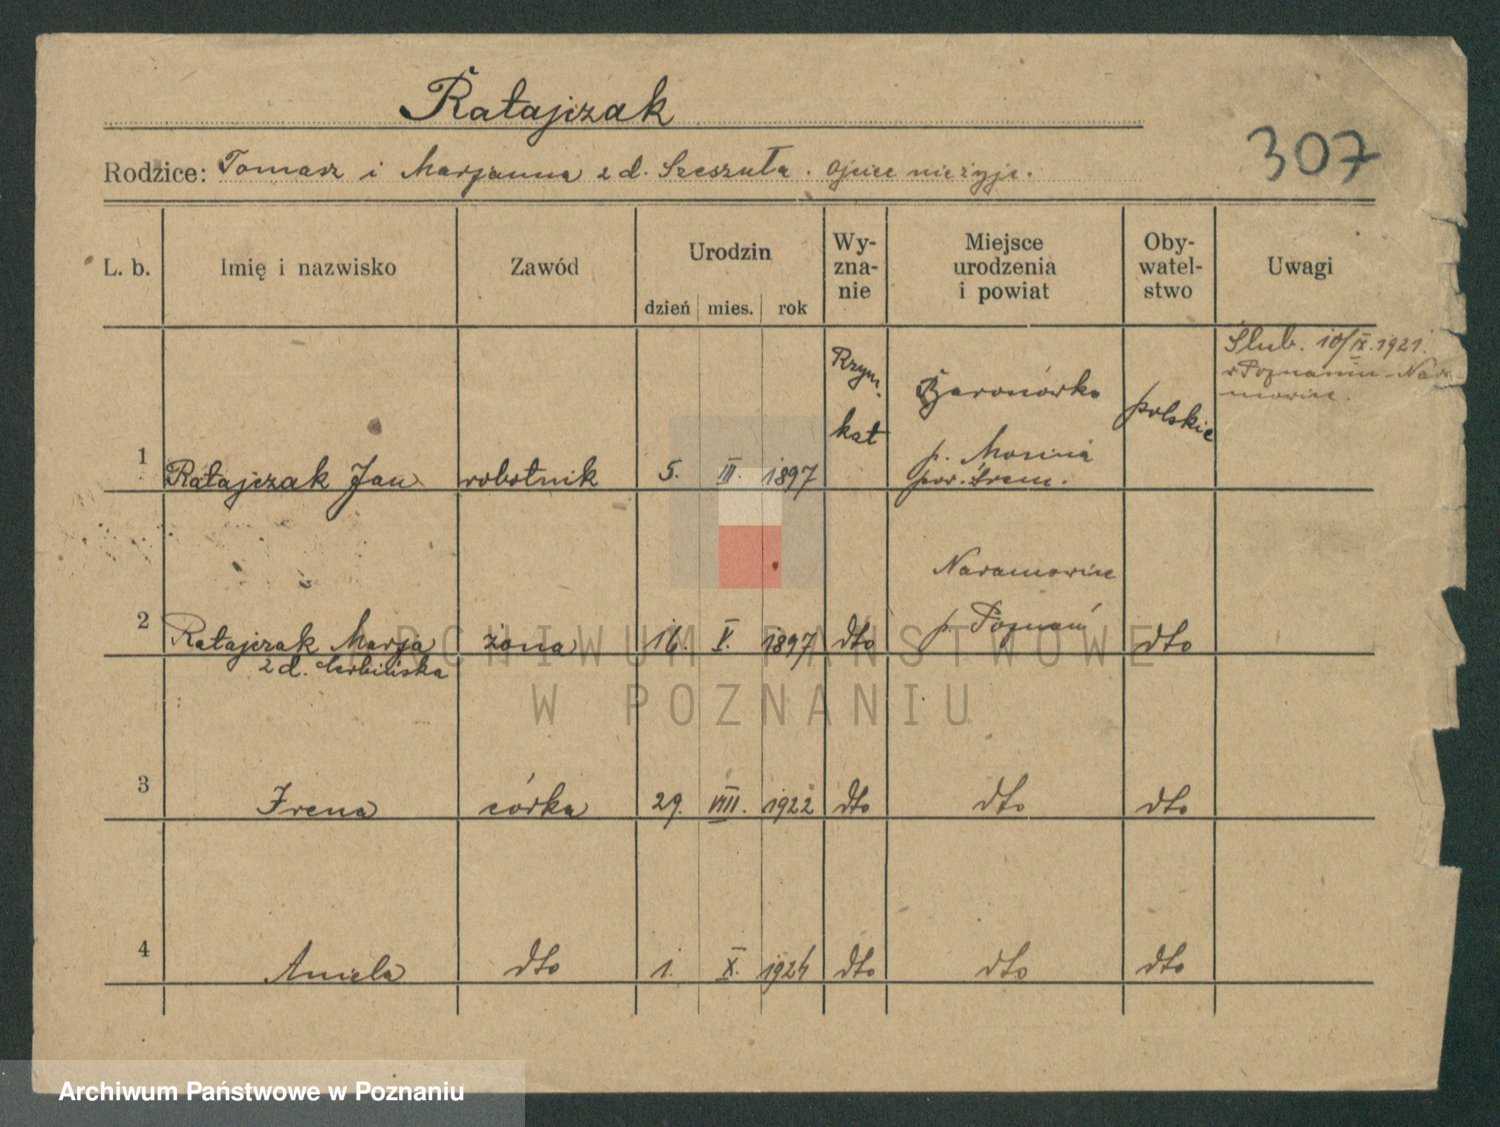 Ratajczak
307
Rodzice: Tomasz i Marjanna z d. Szeszuła. Ojciec nie żyje.
L. b. Imię i nazwisko Zawód Urodzin dzień mies. rok Wy-
zna-
nie Miejsce
urodzenia
i powiat Oby-
watel-
stwo Uwagi
1 Ratajczak Jan robotnik 5. III. 1897 Rzym.
kat
p. Mosina
pow. Śrem.
polskie
Ślub. 10/IX.1921.
w Poznaniu-Nara
mowice.
2 Ratajczak Marja żona 16. V. 1897 dto Naramowice
p. Poznań dto
z d.
3 Irena córka 29. VIII. 1922 dto dto dto
4 Aniela dto 1. X. 1924 dto dto dto
ARCHIWUM PAŃSTWOWE
W POZNANIU
Archiwum Państwowe w Poznaniu